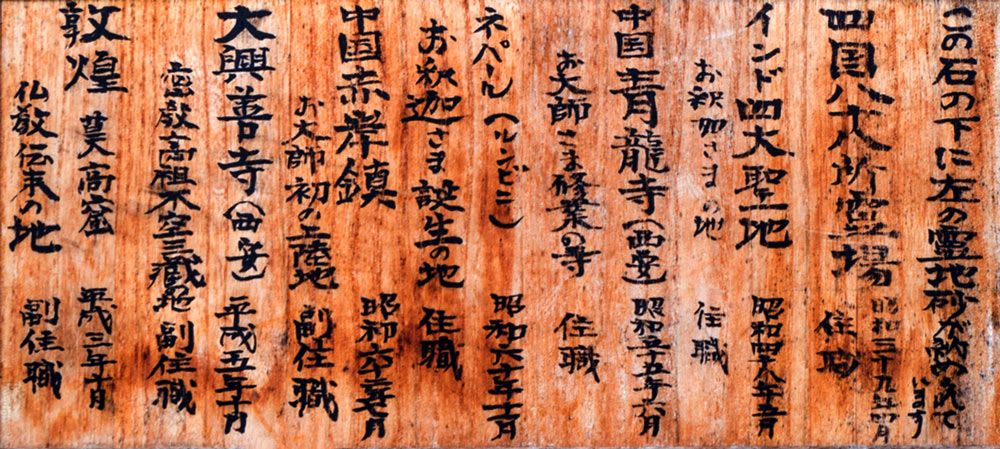 この石の下に左の霊地砂が納められています
四国八十八所霊場 昭和三十九年四月
住職
インド四大聖地 昭和四十八年五月
お釈迦さまの地 住職
中国青龍寺(西安) 昭和五十五年六月
お大師さま修業の寺 住職
ネパール(ヘルンビニ) 昭和六十年十一月
お釈迦さま誕生の地 住職
中国赤岸鎮 昭和六三年七月
お大師初の上陸地 副住職
大興善寺(西安) 平成五年十月
密教高祖不空三蔵 副住職
敦煌 莫高窟 平成三年十月
仏教伝来の地 副住職